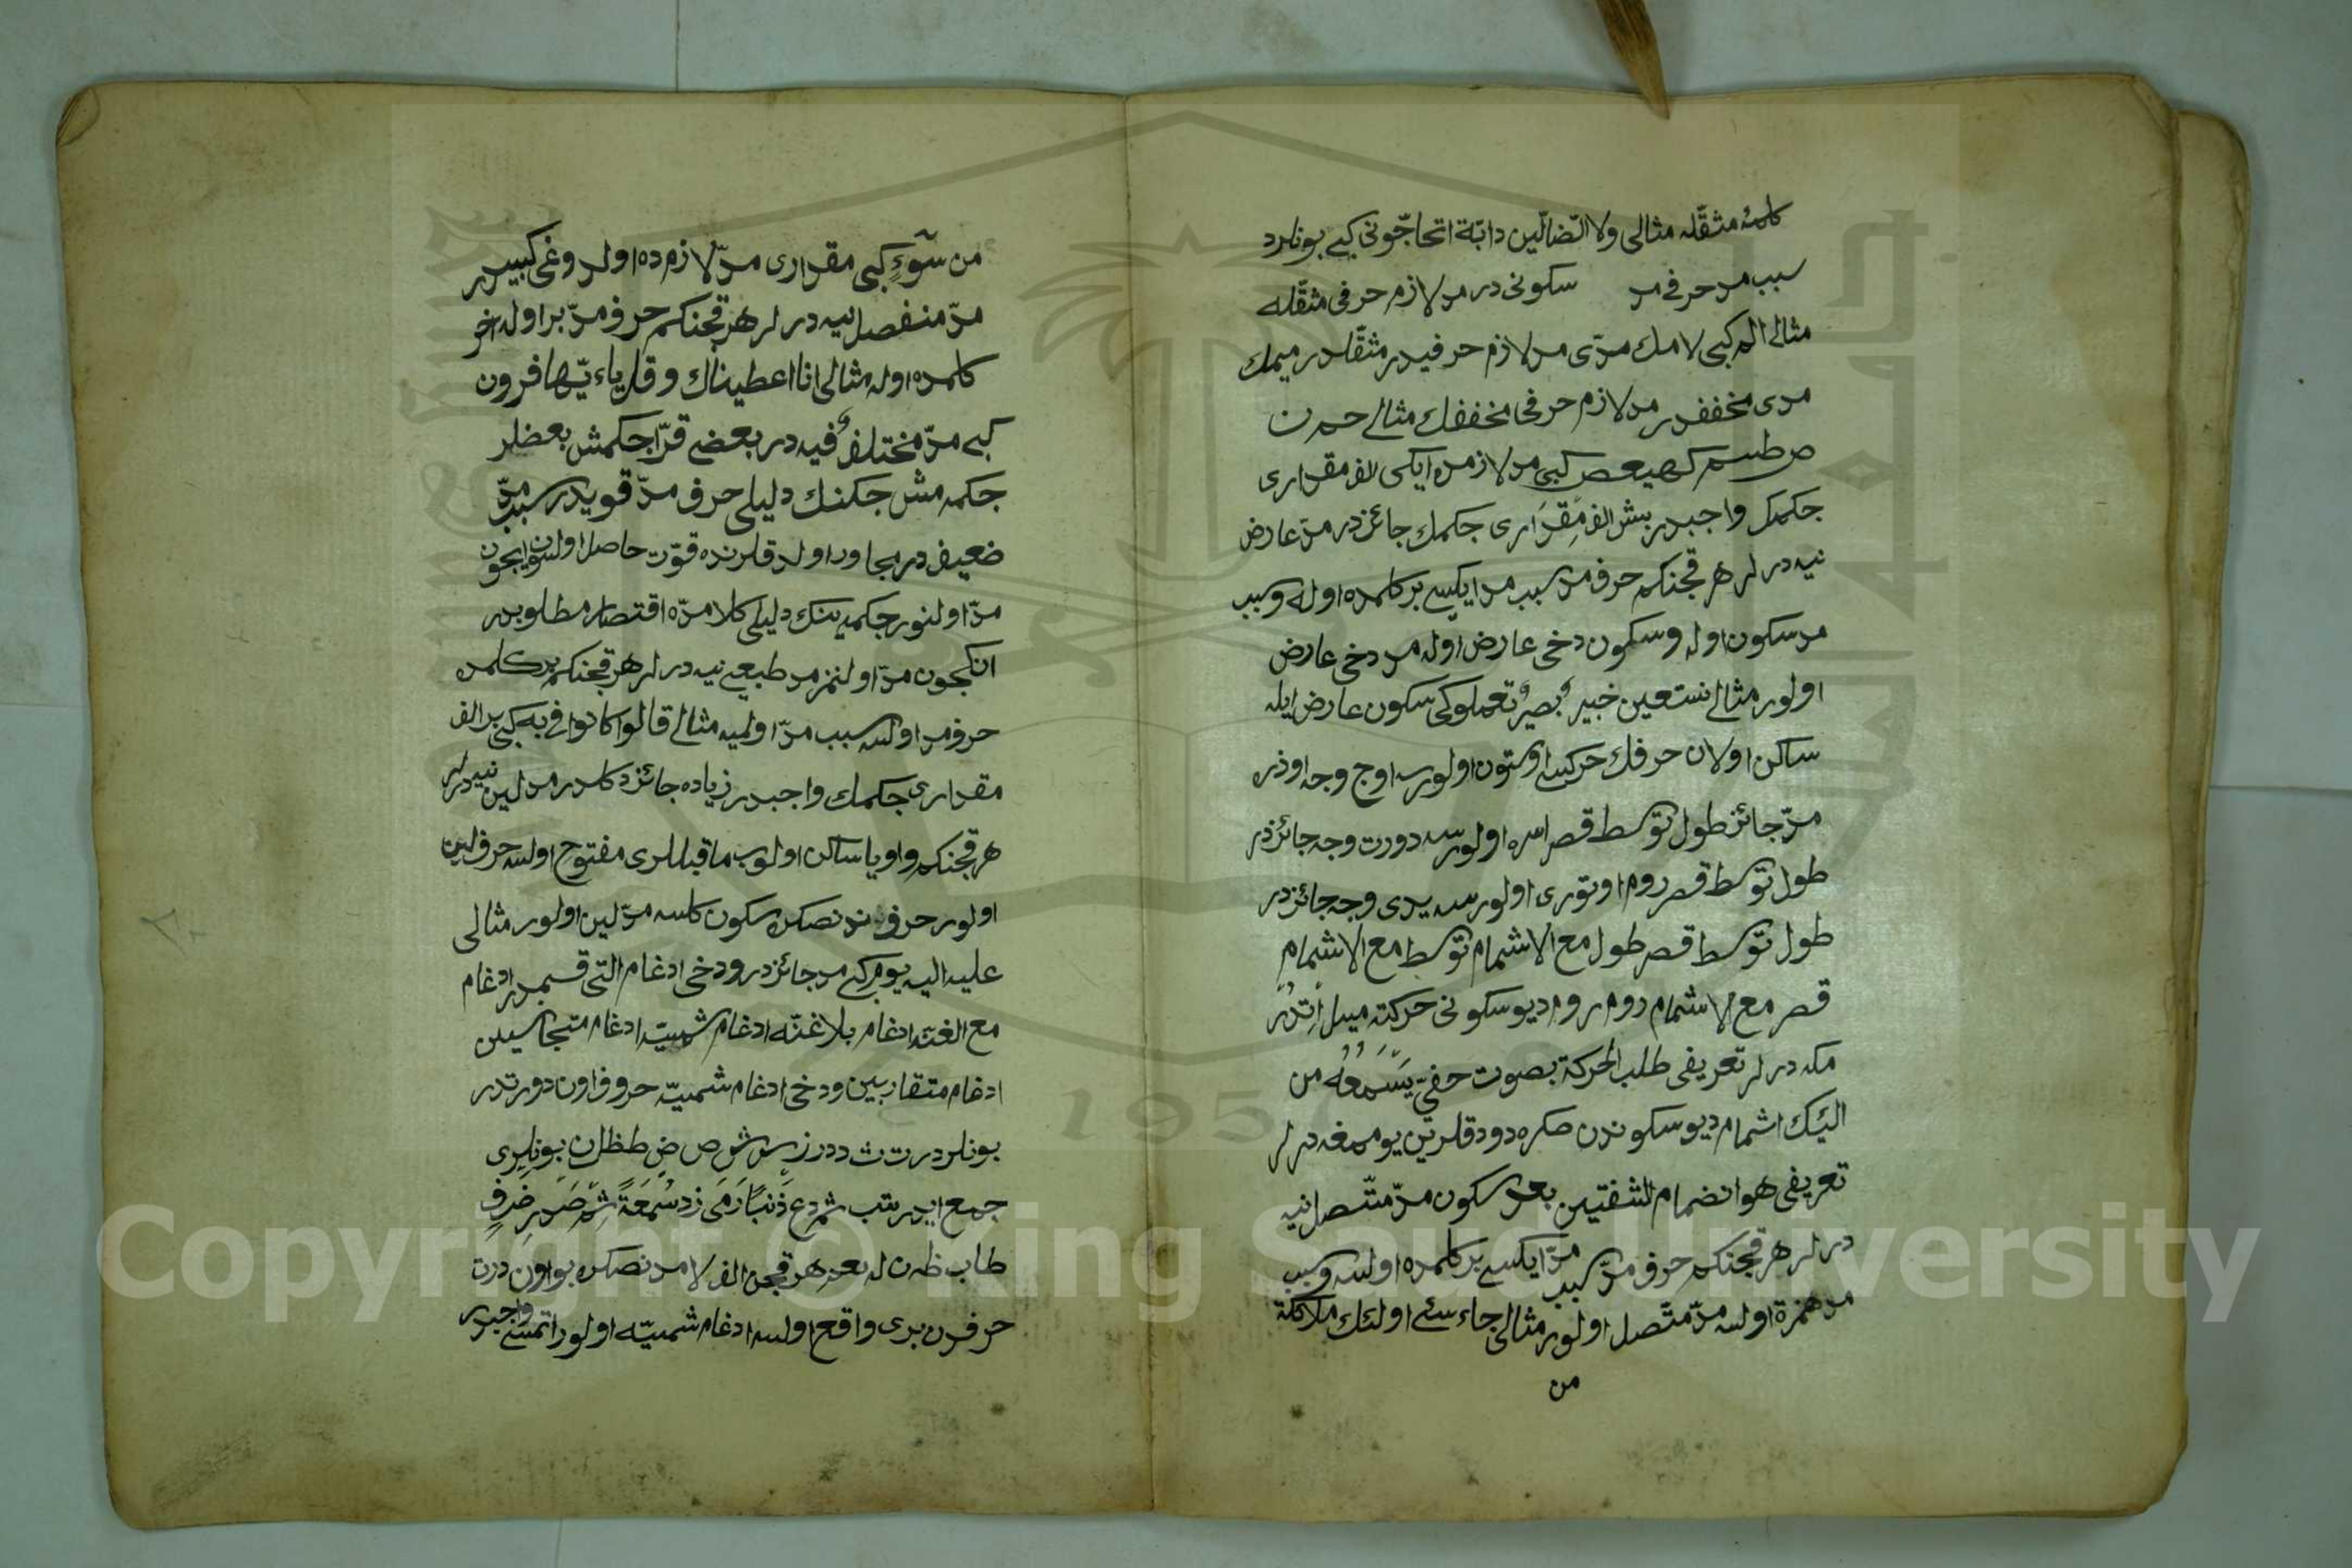 كلمۀ مثقّله مثالى ولا الضّالّين دابّة اتحاجّونى كبى بونلرد
سبب مد حرف مد سكونى در مد لازم حرفى مثقّله
مثالى الم كبى لامك مدّى مد لازم حرفيدر مثقّلدر ميمك
مدى مخففدر مد لازم حرفى مخففك مثالى حم ن
ص طسم كهيعص كبى مد لازمده ايكى الف مقدارى
جكمك واجبدر بش الف مِقدَارى جكمك جائزدر مدّ عارض
نيه درلر هر قچنكم حرف مد سبب مد ايكسى بر كلمده اوله وسبب
مد سكون اوله وسكون دخى عارض اوله مد دخى عارض
اولور مثالى نستعين خبير بصير تعملو كى سكون عارض ايله
ساكن اولان حرفك حركسى اوستون اولورسه اوج وجه اوذره
مدّ جائز طول توسط قصر اسره اولورسه دورت وجه جائزدر
طول توسط قصر روم اوتورى اولورسه يدى وجه جائزدر
طول توسط قصر طول مع الاشمام توسط مع الاشمام
قصر مع الاشمام روم روم ديو سكونى حركته ميل اِتدُر
مكه درلر تعريفى طلب الحركة بصوت خفىّ يَسْمَعُهُ من
اليك اشمام ديو سكوندن صكره دودقلرين يوممغه درلر
تعريفى هو انضمام الشفتين بعد سكون مدّ متّصل نيه
درلر هر قچنكم حرف مدّ سبب مدّ ايكسى بر كلمده اولسه وسبب
مد همزة اولسه مدّ متّصل اولور مثالى جاء سئ اولئك ملائكة
من
من سوٓءٍ كبى مقدارى مدّ لازم ده اولدوغى كبيدر
مدّ منفصل نيه درلر هر قچنكم حرف مدّ بر اوله اخر
كلمده اوله مثالى انا اعطيناك وقل ياءيّها فرون
كبى مدّ مختلفٌ فيه در بعضى قرّا جكمش بعضلر
جكمه مش جكنك دليلى حرف مدّ قويدر سبب مدّ
ضعيف در مجاور اولدقلرنده قوّت حاصل اولسون ايجون
مدّ اولنور جكمينك دليلى كلامده اقتصار مطلوبدر
انكجون مدّ اولنمز مد طبيعى نيه درلر هر قچنكم بر كلمده
حرف مد اولسه سبب مدّ اولميه مثالى قالوا كانوا فى به كبى بر الف
مقدارى جكمك واجبدر زياده جائز دكلدر مد لين نيه درلر
هر قچنكم واو يا ساكن اولوب ماقبللرى مفتوح اولسه حرف لين
اولور حرف ندنصكره سكون كلسه مدّ لين اولور مثالى
عليه اليه يوم كبى مد جائزدر ودخى ادغام التى قسمدر ادغام
مع الغنّه ادغام بلاغنّه ادغام شمسيّه ادغام متجانسين
ادغام متقاربين ودخى ادغام شمسيّه حروف اون دورتدر
بونلردر ت ث د ذ ر ز س ش ص ض ط ظ ل ن بونلرى
جمع ايدر تب ثم دع ذَنبًا رَمَى زد سُمعَةً شِمْ صَدرَ ضَرفٍ
طاب ظ ن له بعد هر قچن الف لامدنصكره بو اون درت
حرفدن برى واقع اولسه ادغام شمسيّه اولور اتمسى واجبدر